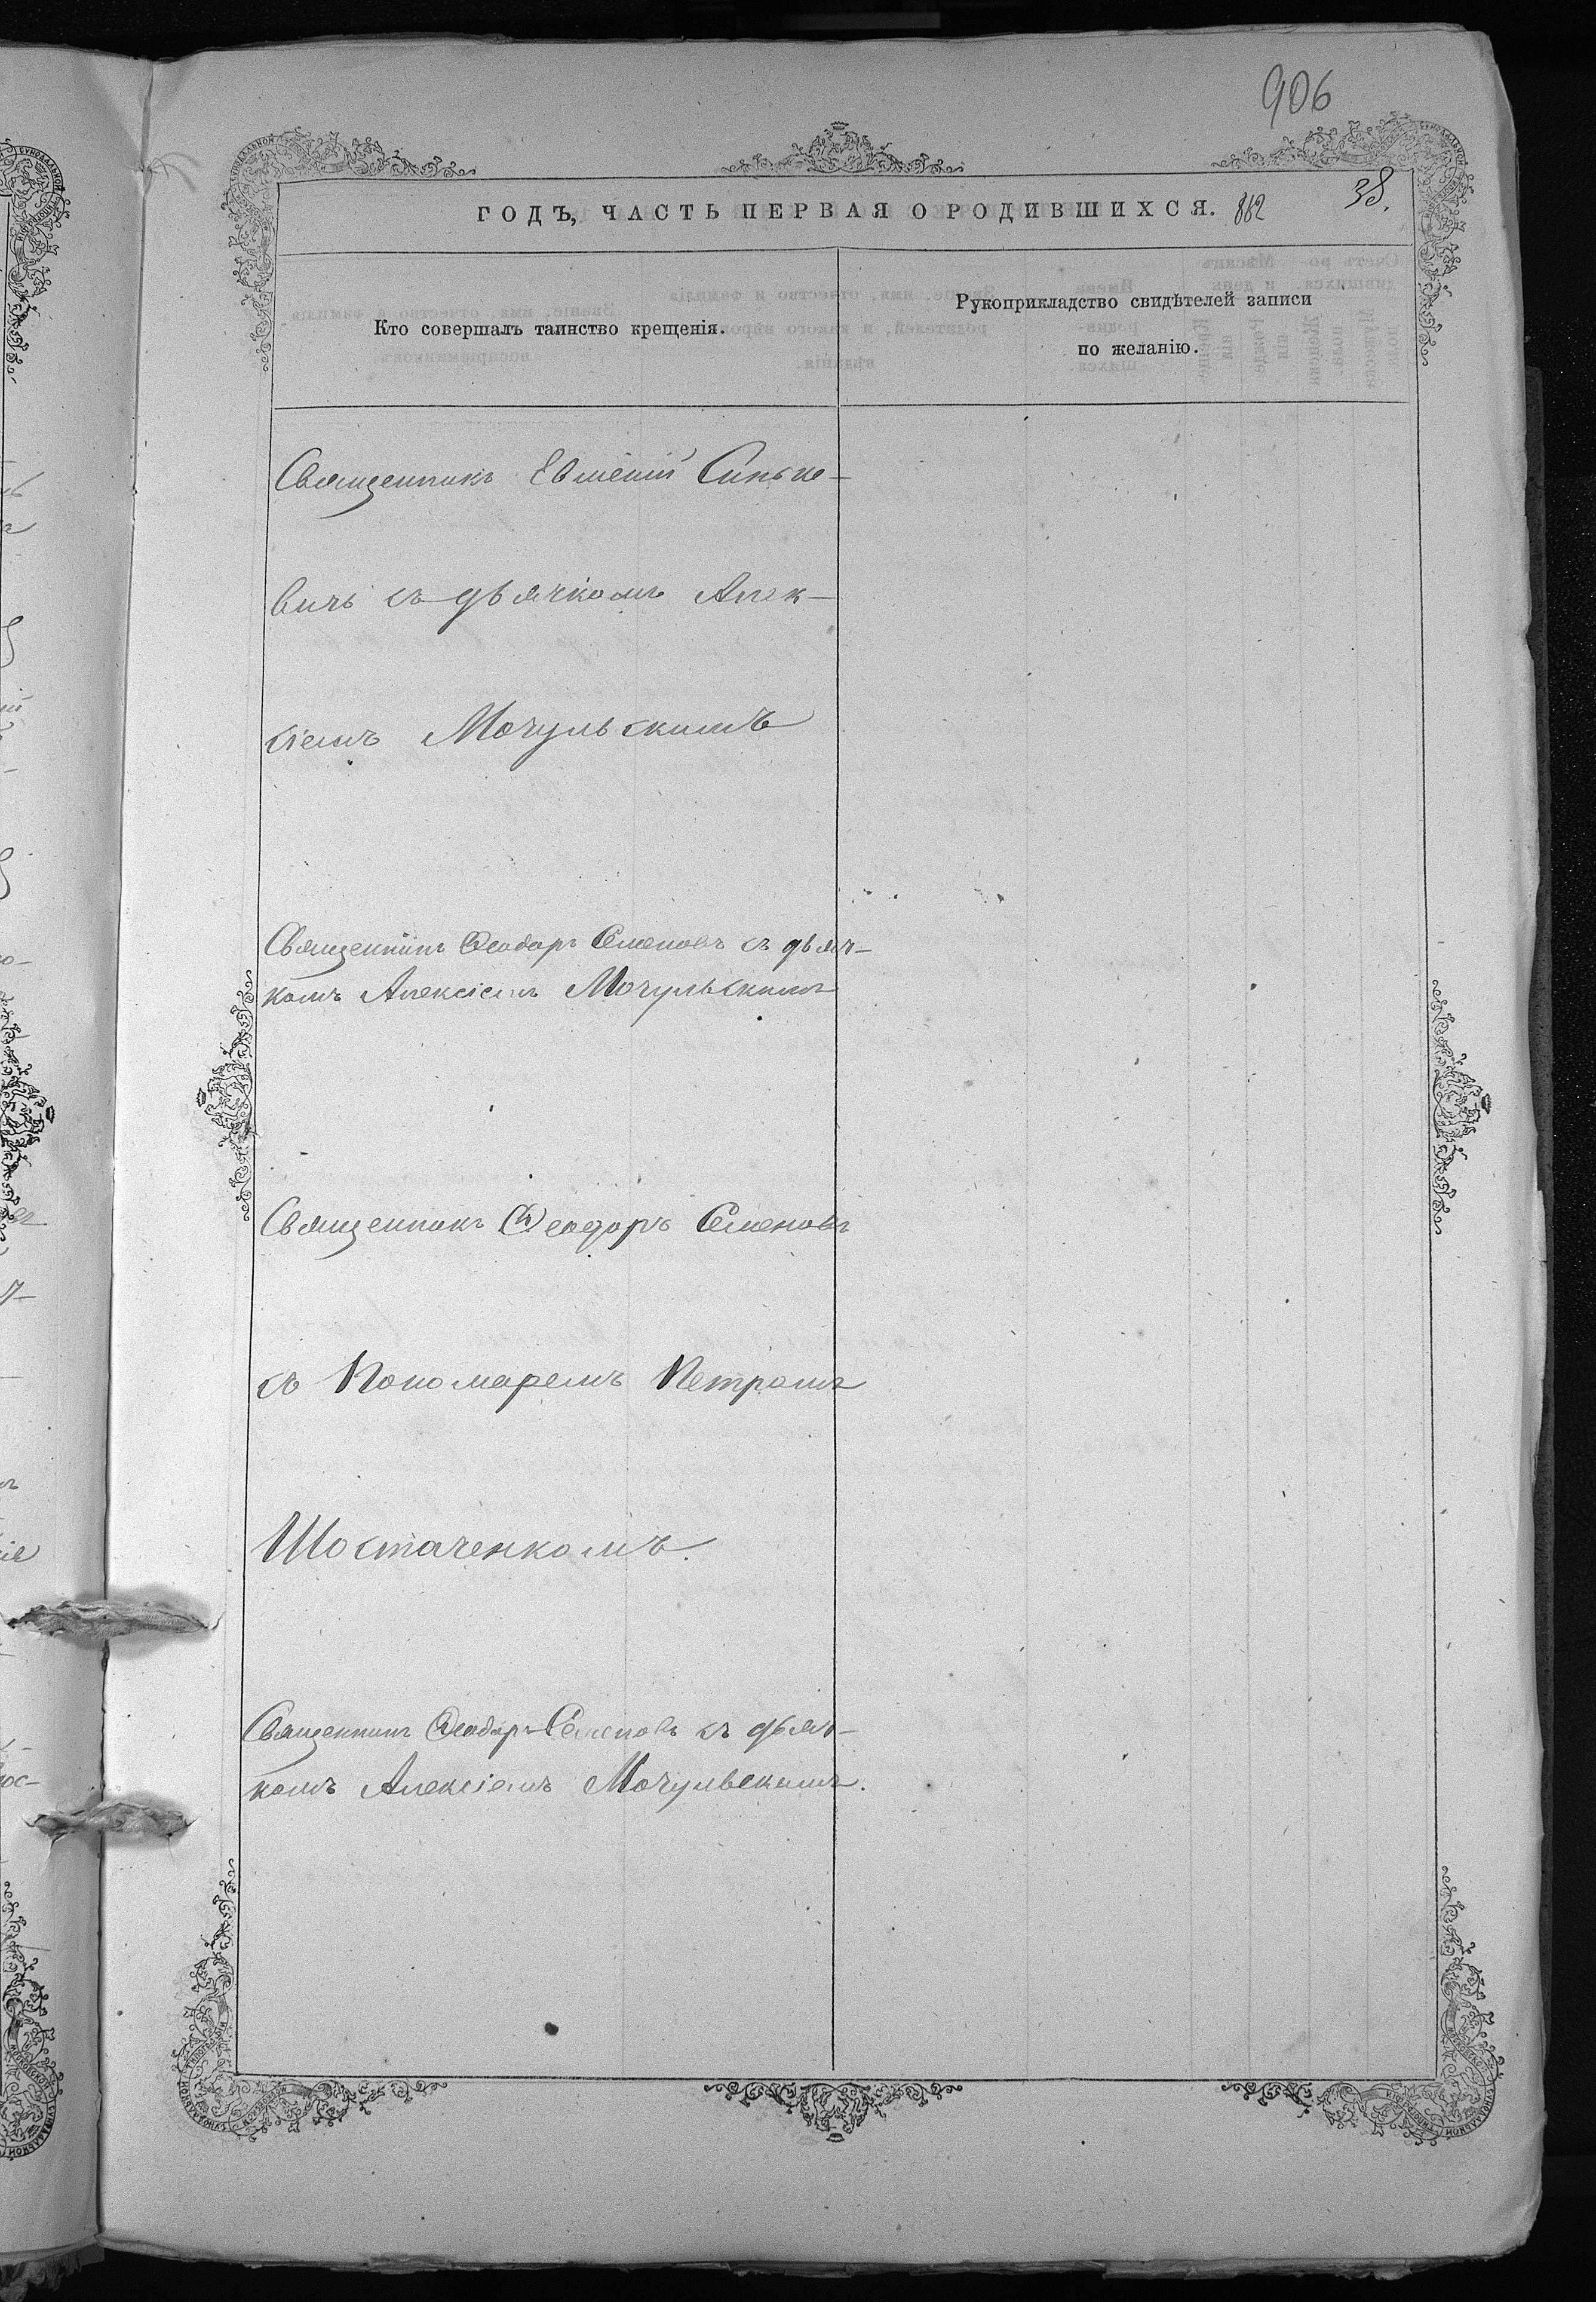 906
ГОДЪ, ЧАСТЬ ПЕРВАЯ О РОДИВШИХСЯ. 862
38.
Кто совершалъ таинство крещенія.
Рукоприкладство свидѣтелей записи
по желанію.
Священникъ Евменій Синьке-
вичъ съ дьячкомъ Алек-
сіемъ Мочульскимъ
Священникъ Ѳеодоръ Семеновъ съ дьяч-
комъ Алексіемъ Мочульскимъ
Священникъ Ѳеодоръ Семеновъ
съ Пономаремъ Петромъ
Шостаченкомъ.
Священникъ Ѳеодоръ Семеновъ съ дьяч-
комъ Алексіемъ Мочульскимъ.